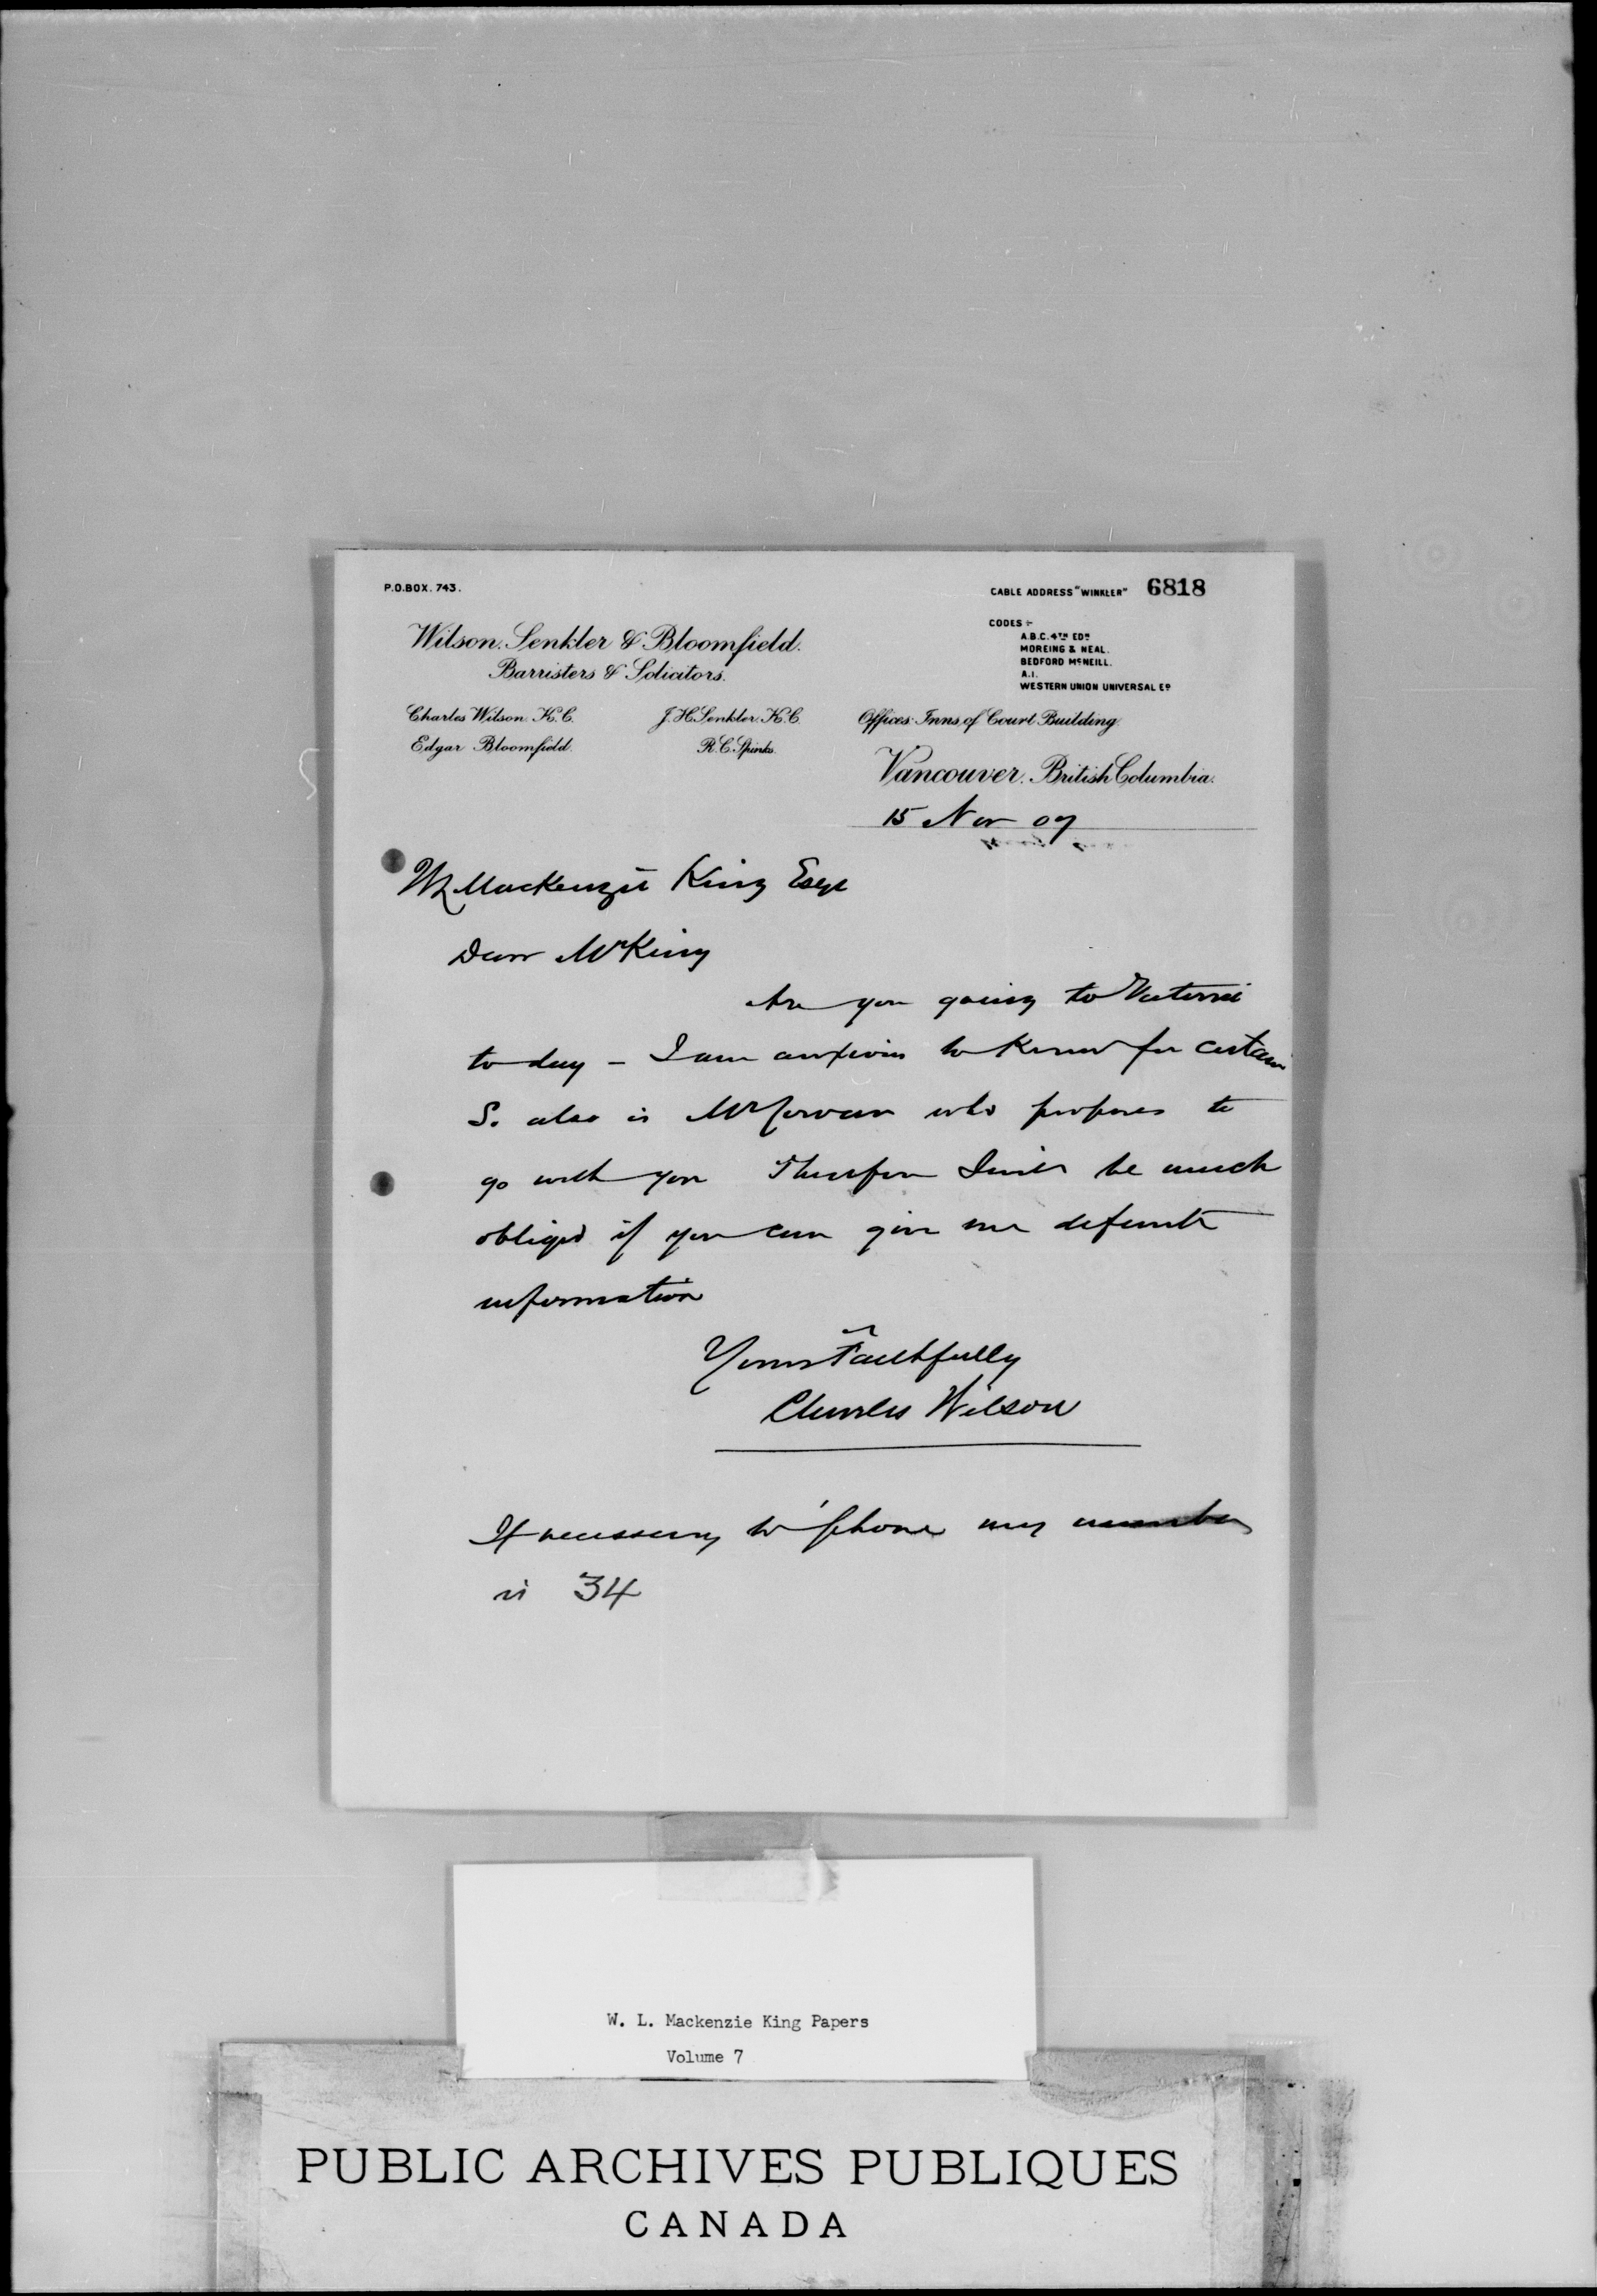 P.O.BOX. 743.
CABLE ADDRESS "WINKLER" 6818
Wilson, Senkler & Bloomfield.
Barristers & Solicitors.
CODES :-
A.B.C. 4TH EDN
MOREING & NEAL.
BEDFORD McNEILL.
A.I.
WESTERN UNION UNIVERSAL ED
Charles Wilson. K.C. J.H. Senkler. K.C.
Edgar Bloomfield. R.C. Spinks.
Offices: Inns of Court Building.
Vancouver. British Columbia.
15 Nov 07
Mackenzie King Esqr
Dear Mr King
Are you going to Victoria
to day - I am anxious to know for certain
So also is Mr who proposes to
go with you Therefore I will be much
obliged if you can give me definite
information
Yours Faithfully
Charles Wilson
If necessary to 'phone my number
is 34
W. L. Mackenzie King Papers
Volume 7
PUBLIC ARCHIVES PUBLIQUES
CANADA